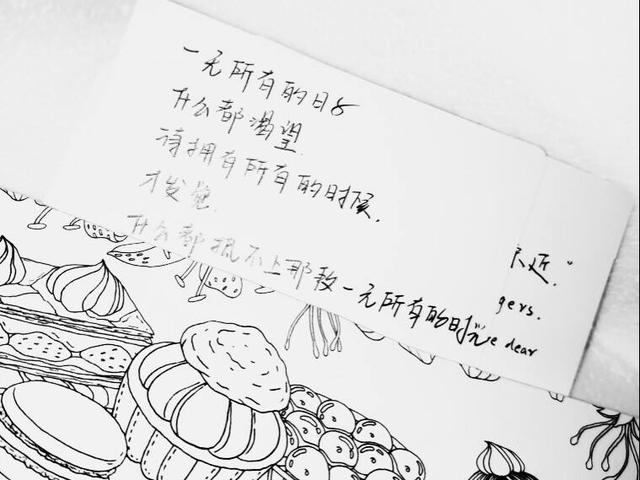 一无所有的日子
什么都渴望
待拥有所有的时候,
才发觉
什么都抵不上那款一无所有的时光
gers.
e dear